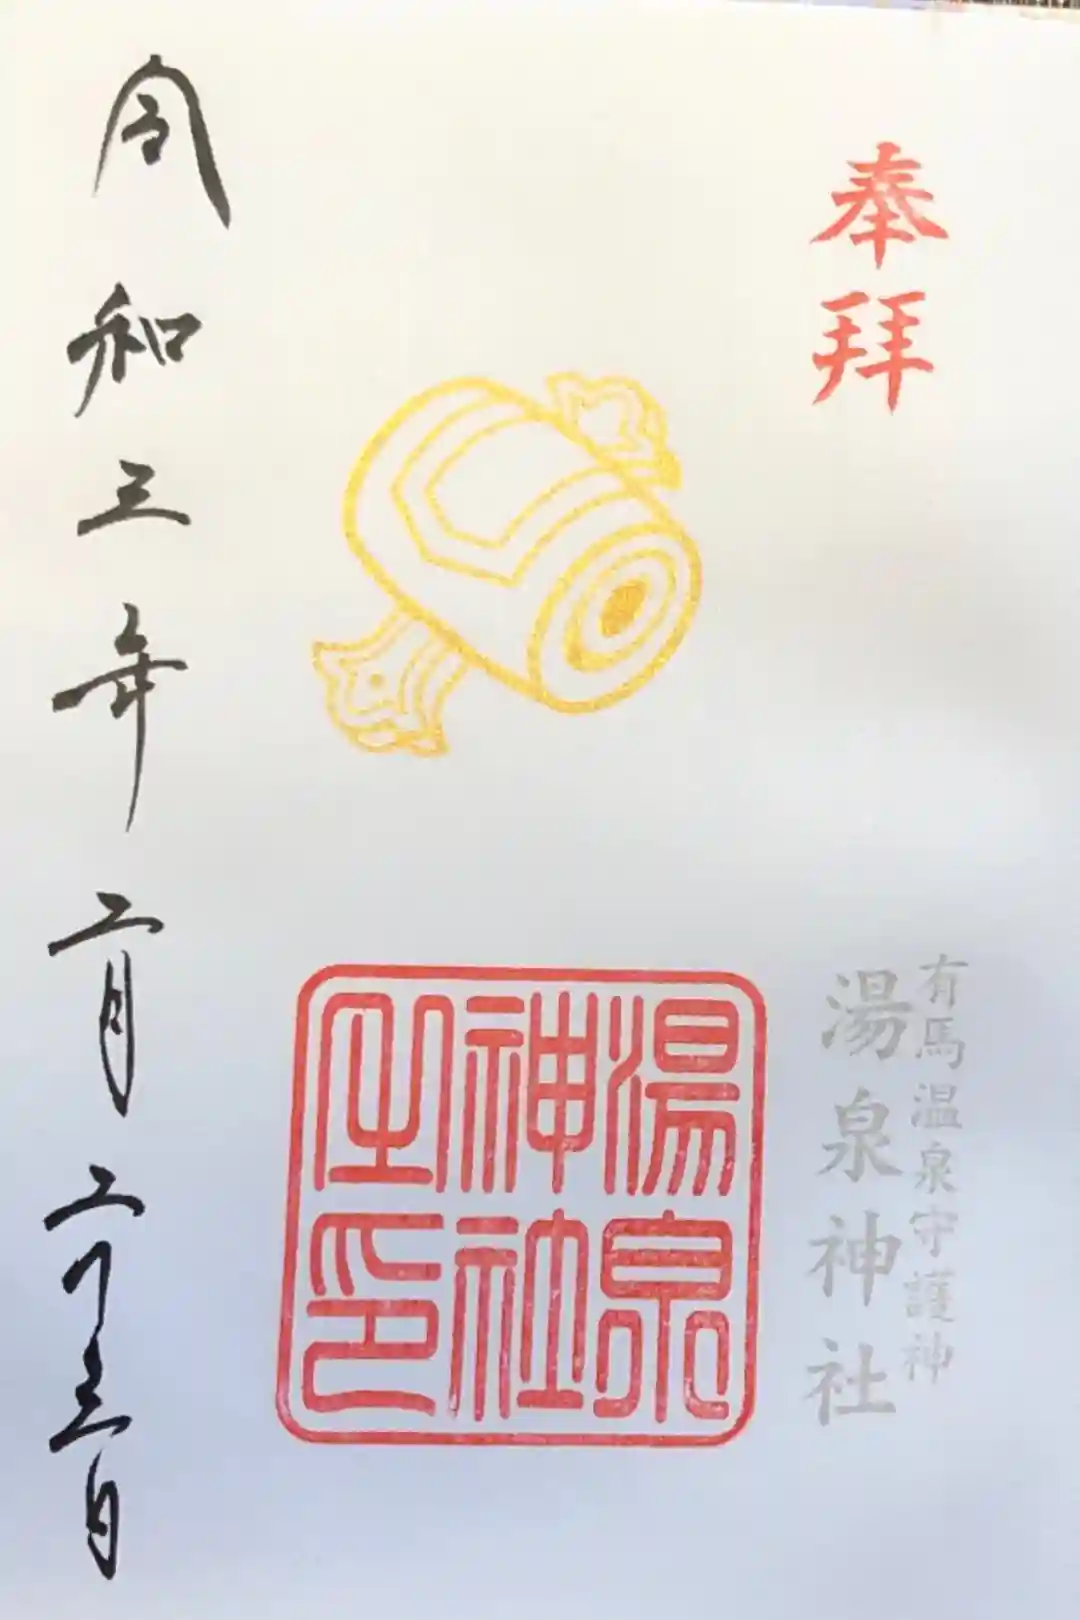 奉拝
有馬温泉守護神
湯泉神社
湯泉
神社
之印
令和三年二月二十三日